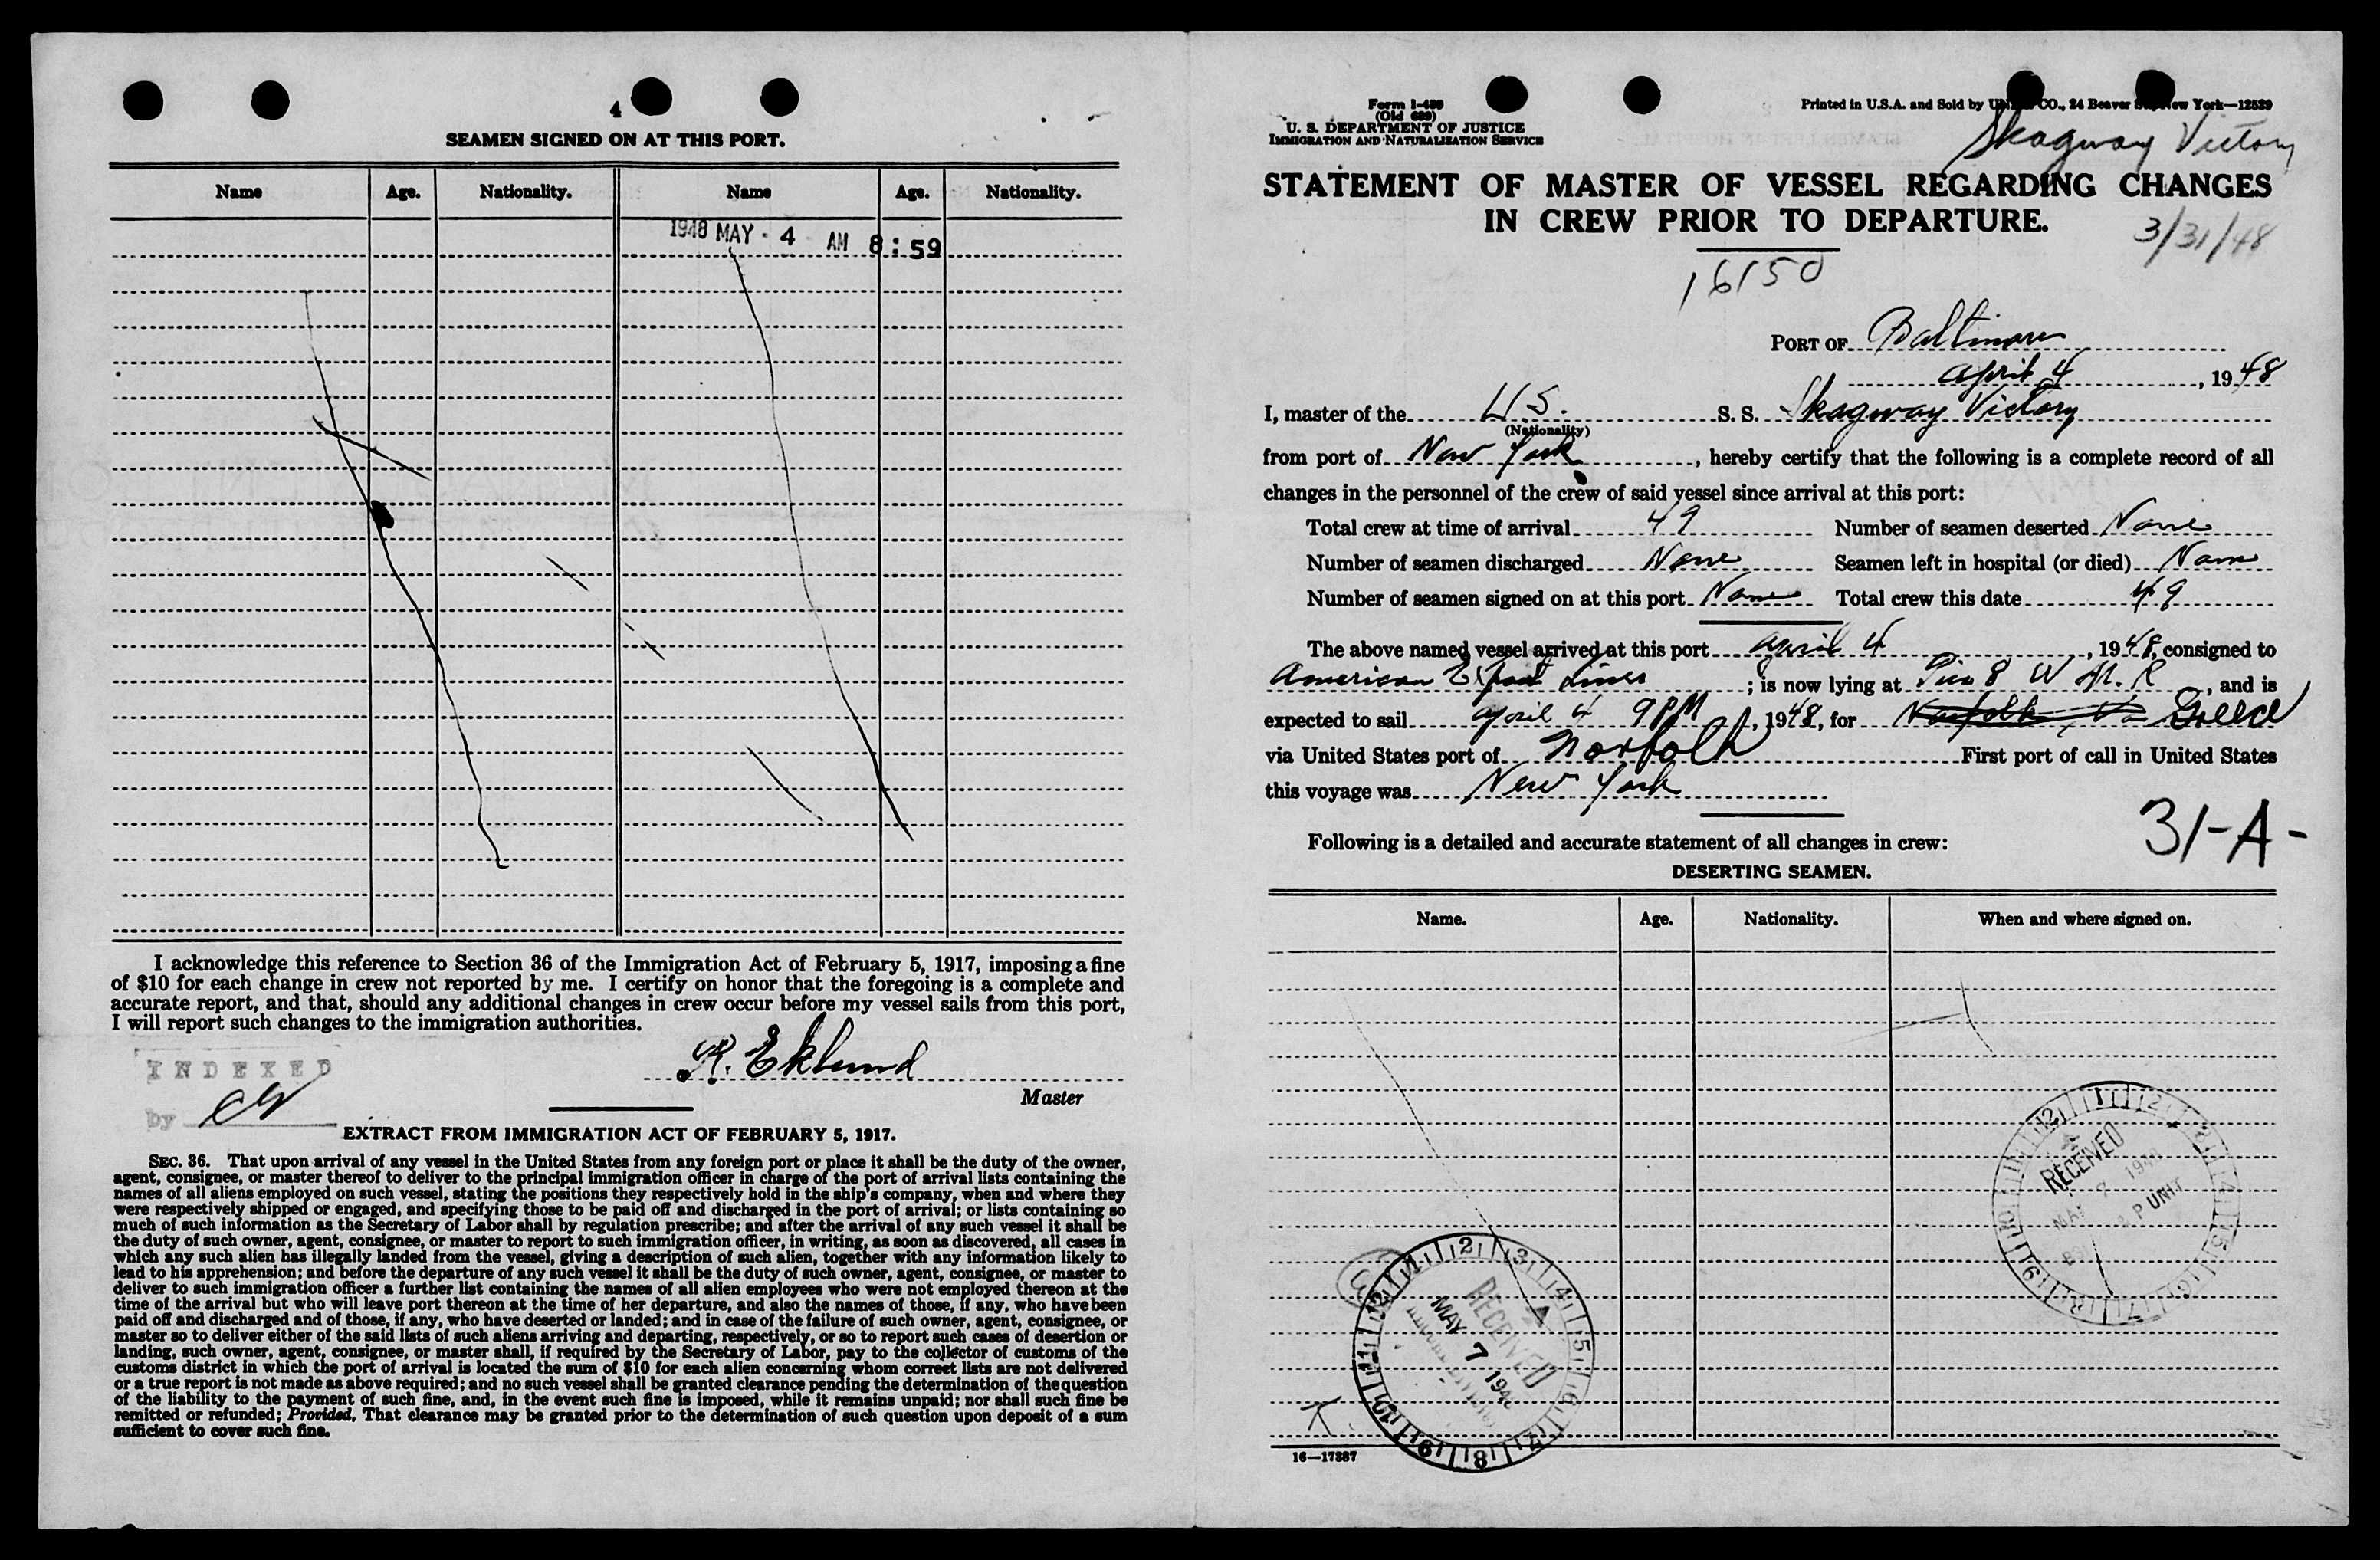 4
SEAMEN SIGNED ON AT THIS PORT.
Name Age. Nationality. Name Age. Nationality.
1948 MAY - 4 AM 8:59
I acknowledge this reference to Section 36 of the Immigration Act of February 5, 1917, imposing a fine
of $10 for each change in crew not reported by me. I certify on honor that the foregoing is a complete and
accurate report, and that, should any additional changes in crew occur before my vessel sails from this port,
I will report such changes to the immigration authorities.
R. Eklund
Master
INDEXED
by
EXTRACT FROM IMMIGRATION ACT OF FEBRUARY 5, 1917.
SEC. 36. That upon arrival of any vessel in the United States from any foreign port or place it shall be the duty of the owner,
agent, consignee, or master thereof to deliver to the principal immigration officer in charge of the port of arrival lists containing the
names of all aliens employed on such vessel, stating the positions they respectively hold in the ship's company, when and where they
were respectively shipped or engaged, and specifying those to be paid off and discharged in the port of arrival; or lists containing so
much of such information as the Secretary of Labor shall by regulation prescribe; and after the arrival of any such vessel it shall be
the duty of such owner, agent, consignee, or master to report to such immigration officer, in writing, as soon as discovered, all cases in
which any such alien has illegally landed from the vessel, giving a description of such alien, together with any information likely to
lead to his apprehension; and before the departure of any such vessel it shall be the duty of such owner, agent, consignee, or master to
deliver to such immigration officer a further list containing the names of all alien employees who were not employed thereon at the
time of the arrival but who will leave port thereon at the time of her departure, and also the names of those, if any, who have been
paid off and discharged and of those, if any, who have deserted or landed; and in case of the failure of such owner, agent, consignee, or
master so to deliver either of the said lists of such aliens arriving and departing, respectively, or so to report such cases of desertion or
landing, such owner, agent, consignee, or master shall, if required by the Secretary of Labor, pay to the collector of customs of the
customs district in which the port of arrival is located the sum of $10 for each alien concerning whom correct lists are not delivered
or a true report is not made as above required; and no such vessel shall be granted clearance pending the determination of the question
of the liability to the payment of such fine, and, in the event such fine is imposed, while it remains unpaid; nor shall such fine be
remitted or refunded; Provided, That clearance may be granted prior to the determination of such question upon deposit of a sum
sufficient to cover such fine.
Form I-489
(Old 689)
U. S. DEPARTMENT OF JUSTICE
IMMIGRATION AND NATURALIZATION SERVICE
Printed in U.S.A. and Sold by CO., 24 Beaver New York—12529
Skagway Victory
STATEMENT OF MASTER OF VESSEL REGARDING CHANGES
IN CREW PRIOR TO DEPARTURE.
3/31/48
16150
PORT OF Baltimore
April 4, 1948
I, master of the U.S. S. S. Skagway Victory
(Nationality)
from port of New York, hereby certify that the following is a complete record of all
changes in the personnel of the crew of said vessel since arrival at this port:
Total crew at time of arrival 49 Number of seamen deserted None
Number of seamen discharged None Seamen left in hospital (or died) None
Number of seamen signed on at this port None Total crew this date 49
The above named vessel arrived at this port April 4, 1948, consigned to
American Export Lines; is now lying at Pier 8 W M. R, and is
expected to sail April 4 9 PM, 1948, for Norfolk, Va Greece
via United States port of Norfolk First port of call in United States
this voyage was New York
31-A-
Following is a detailed and accurate statement of all changes in crew:
DESERTING SEAMEN.
Name. Age. Nationality. When and where signed on.
RECEIVED
MAY 7 194
P UNIT
RECEIVED
MAY 7 194
K.
16—17887